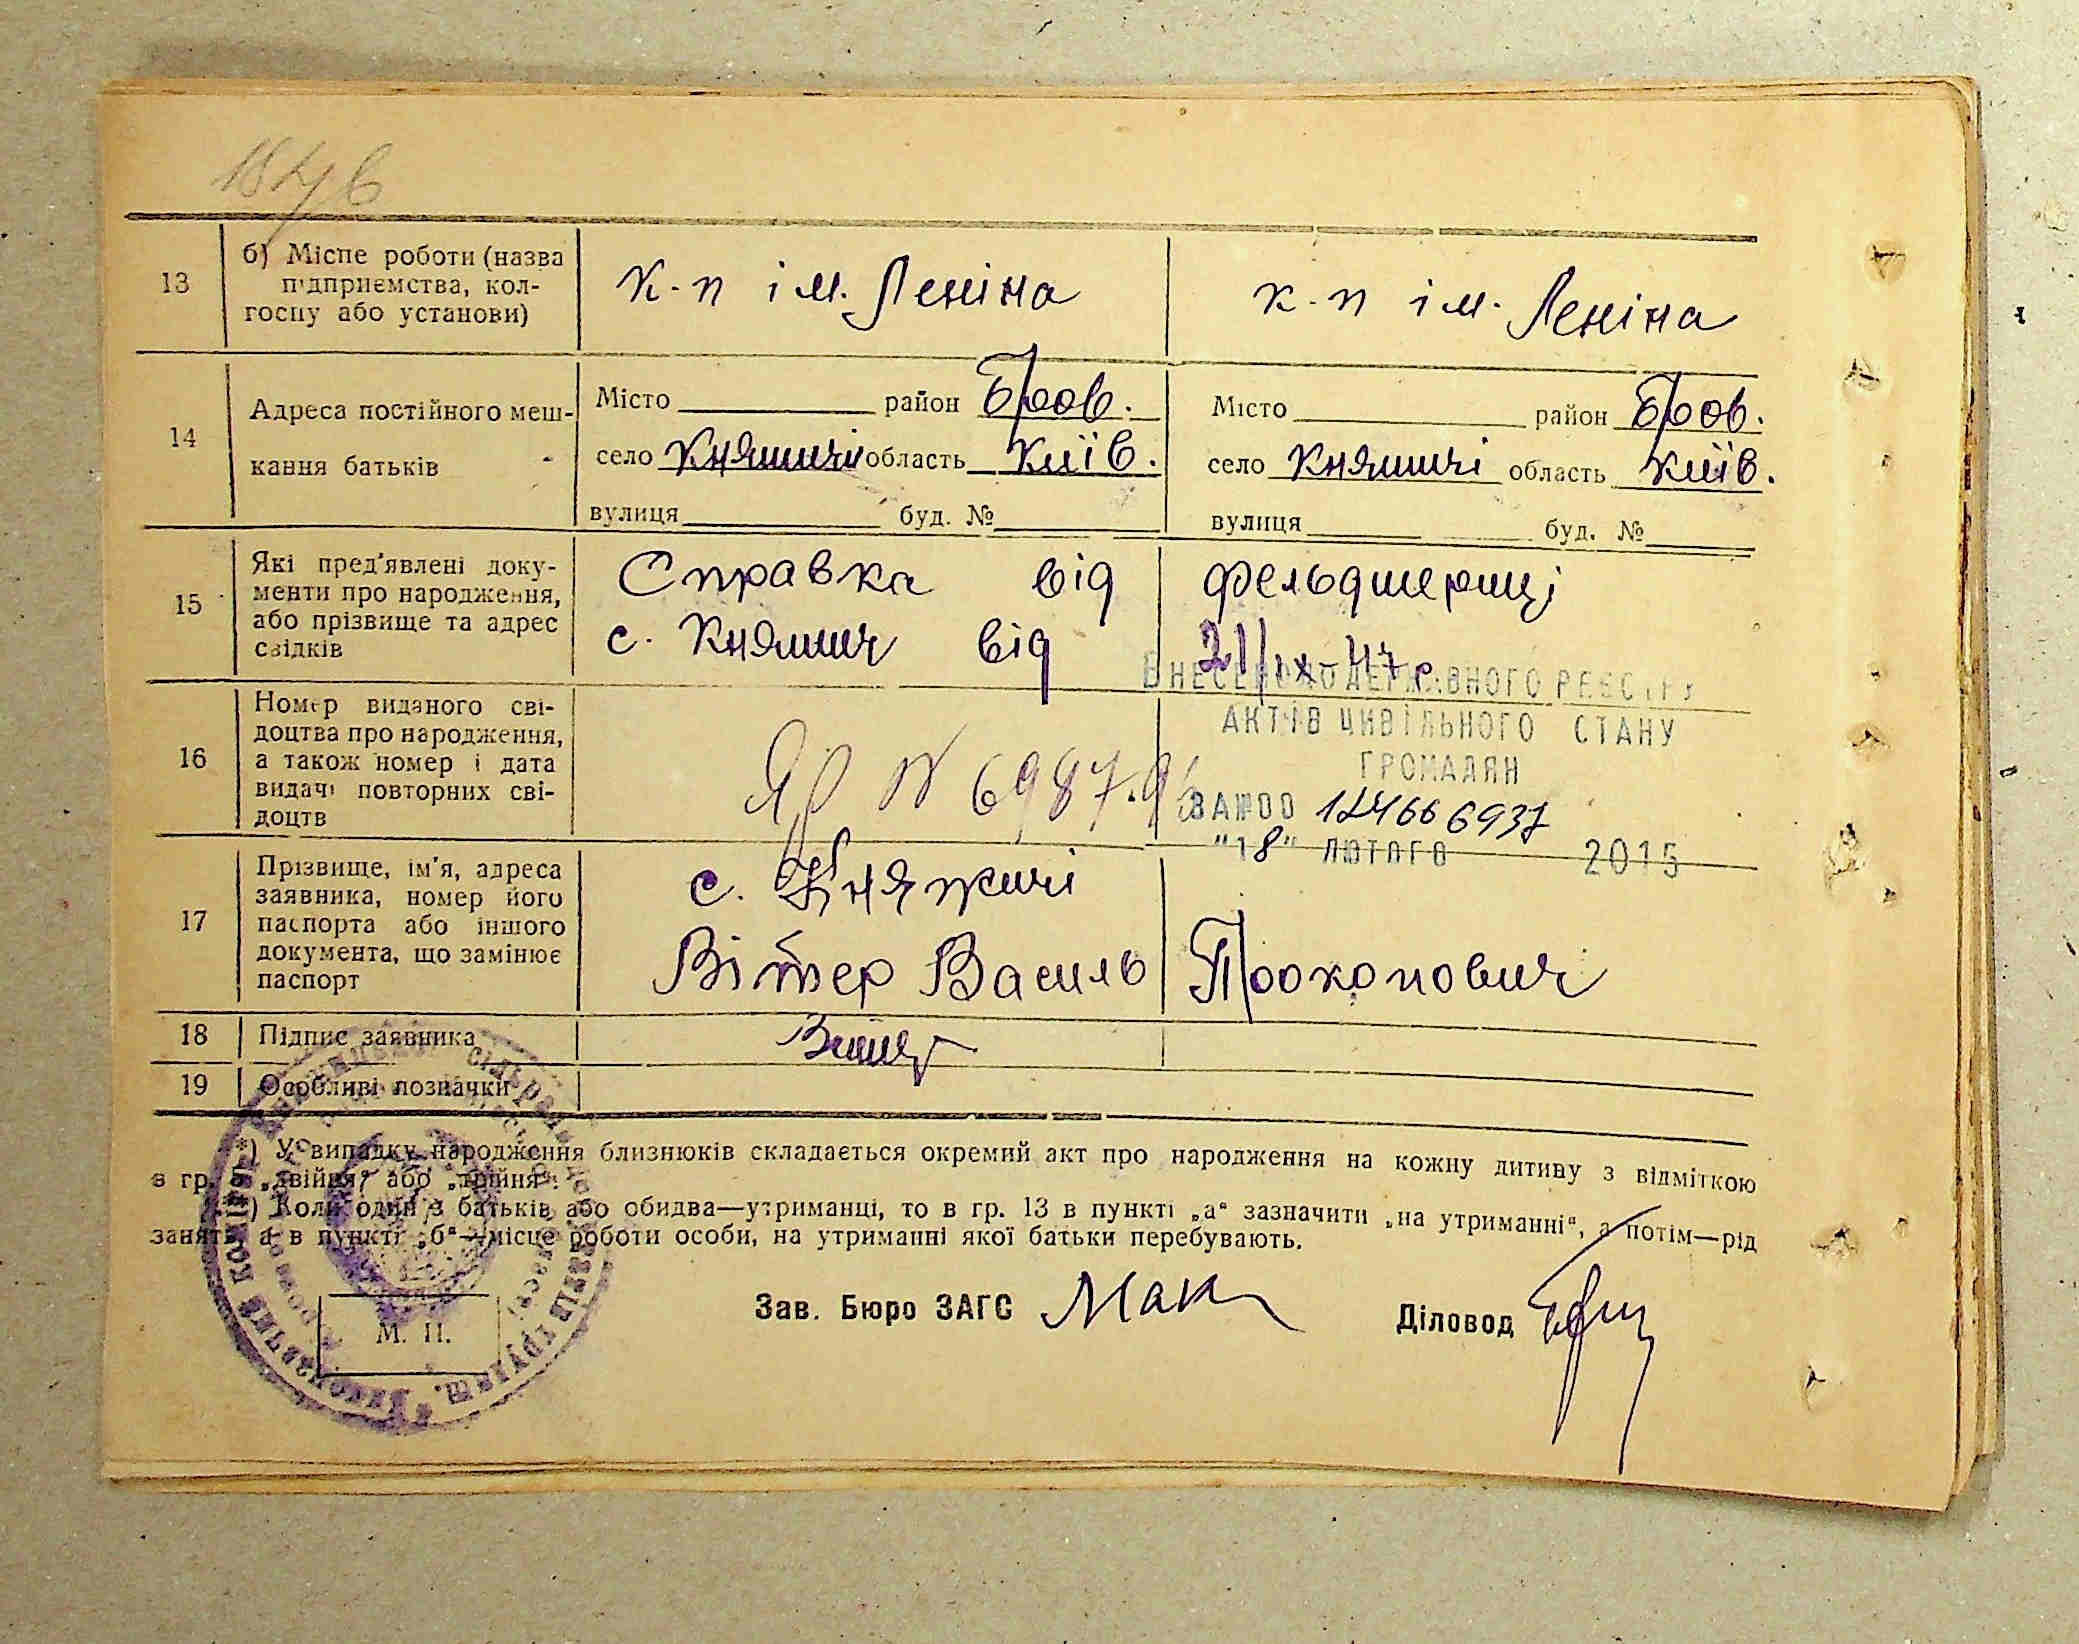 13
б) Місце роботи (назва
підприємства, кол-
госпу або установи)
к-п ім. Леніна
к-п ім. Леніна
14
Адреса постійного меш-
кання батьків
Місто район Бров.
село Княжичі область Київ.
вулиця буд. №
Місто район Бров.
село Княжичі область Київ.
вулиця буд. №
15
Які пред'явлені доку-
менти про народження,
або прізвище та адрес
свідків
Справка від фельдшериці
с. Княжич від 21/IX-47 р
16
Номер виданого сві-
доцтва про народження,
а також номер і дата
видачі повторних сві-
доцтв
ЯР № 698796
ВНЕСЕНО ДО ДЕРЖАВНОГО РЕЄСТРУ
АКТІВ ЦИВІЛЬНОГО СТАНУ
ГРОМАДЯН
ЗА №00 124666937
"18" ЛЮТОГО 2015
17
Прізвище, ім'я, адреса
заявника, номер його
паспорта або іншого
документа, що замінює
паспорт
с. Княжичі
Вітер Василь Прокопович
18
Підпис заявника
19
Особливі позначки
*) У випадку народження близнюків складається окремий акт про народження на кожну дитину з відміткою
в гр. „двійня" або „трійня".
) Коли один з батьків або обидва—утриманці, то в гр. 13 в пункті „а" зазначити „на утриманні", а потім—рід
занять, а в пункті „б"—місце роботи особи, на утриманні якої батьки перебувають.
М. П.
Зав. Бюро ЗАГС
Діловод